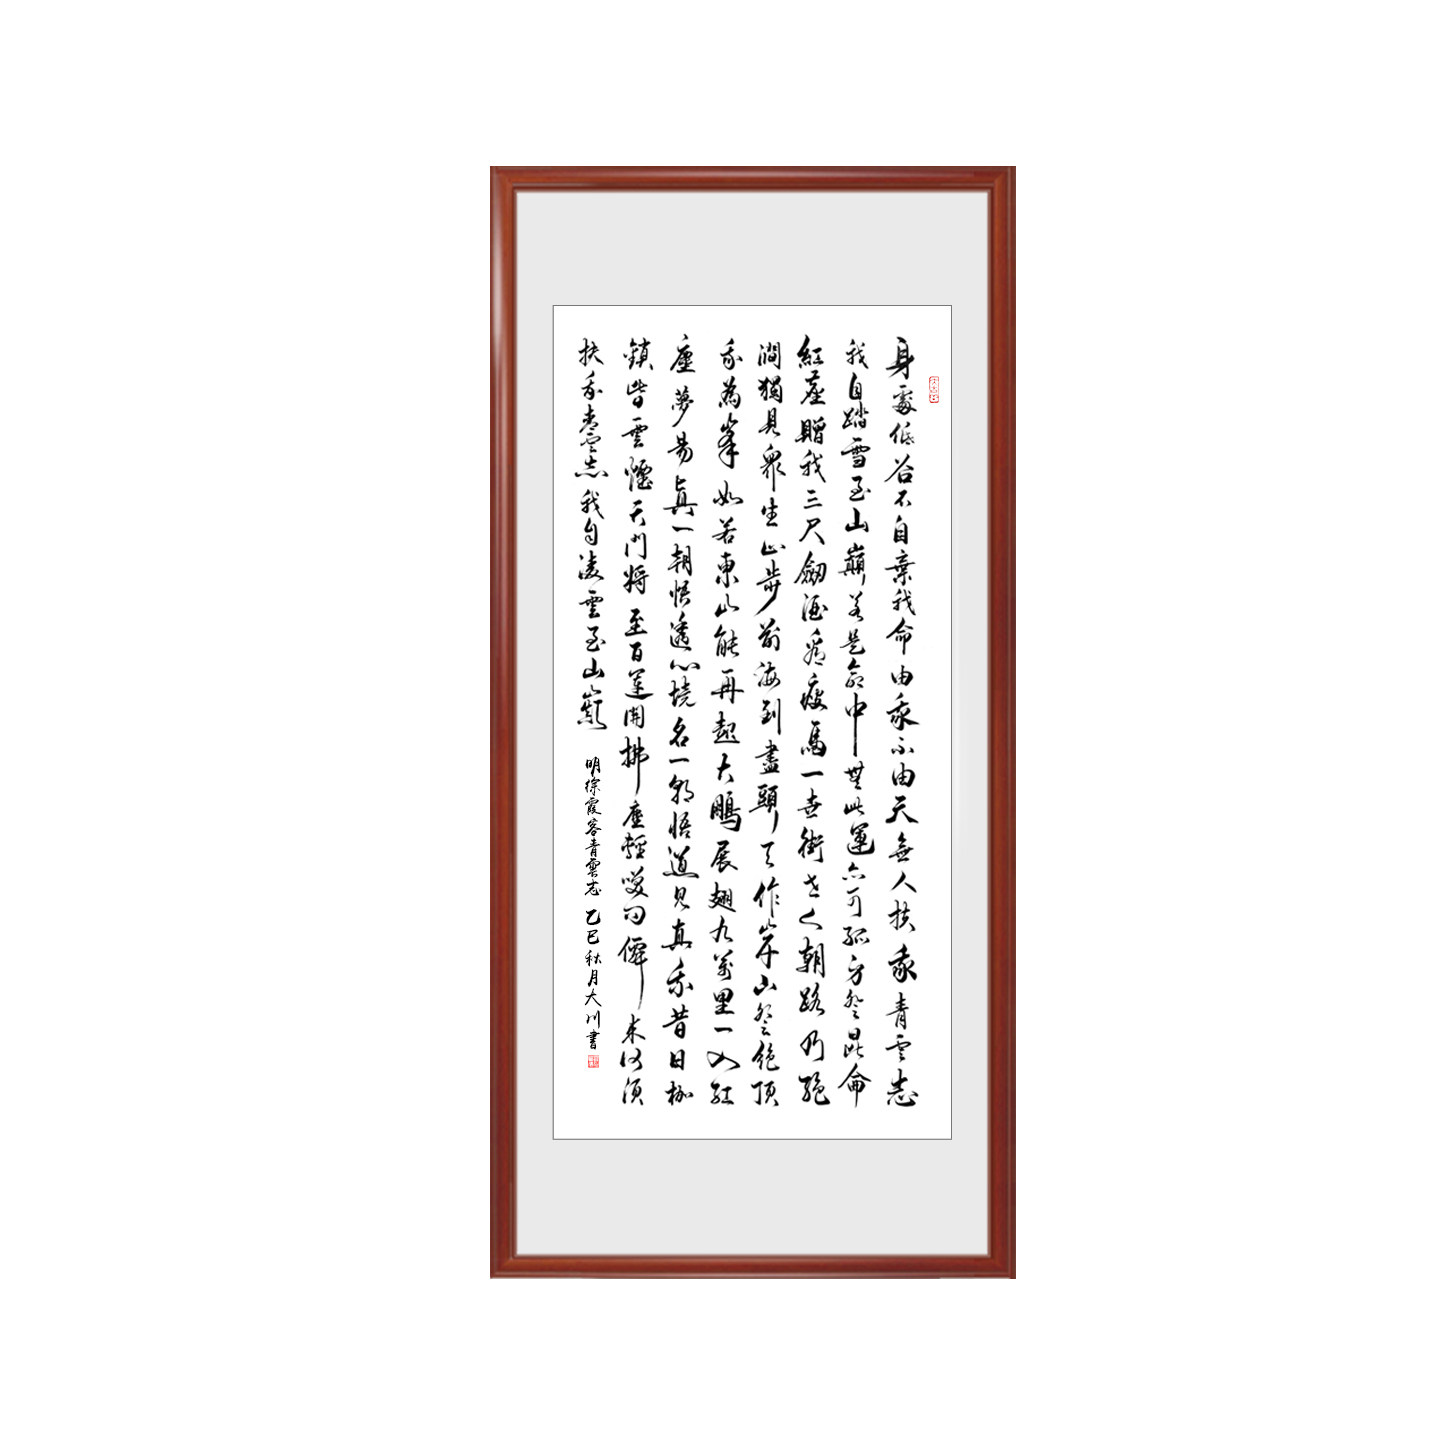 身處低谷不自棄我命由我不由天無人扶我青雲志
我自踏雪至山巔若是命中無此運亦可孤身登昆侖
紅塵贈我三尺劍酒爲瘦馬一壺街老人朝路乃絕
澗獨見眾生止步前海到盡頭天作岸山登絕頂
我為峯如若東山能再起大鵬展翅九萬里一入紅
塵夢易真一朝悟透心境名一朝悟道見真我昔日枷
鎖皆雲煙天門將至百蓮開拂塵輕嘆問僊來何須
扶我青雲志我自凌雲至山巔
明徐霞客青雲志 乙巳秋月大川書